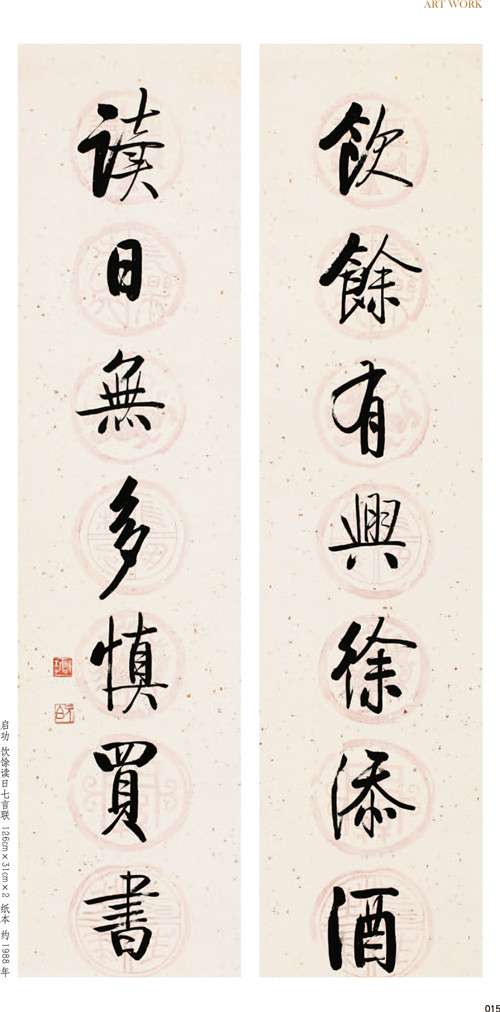 ART WORK
飲餘有興徐添酒
读日無多慎買書
启功 饮馀读日七言联 126cm×31cm×2 纸本 约1988年
015